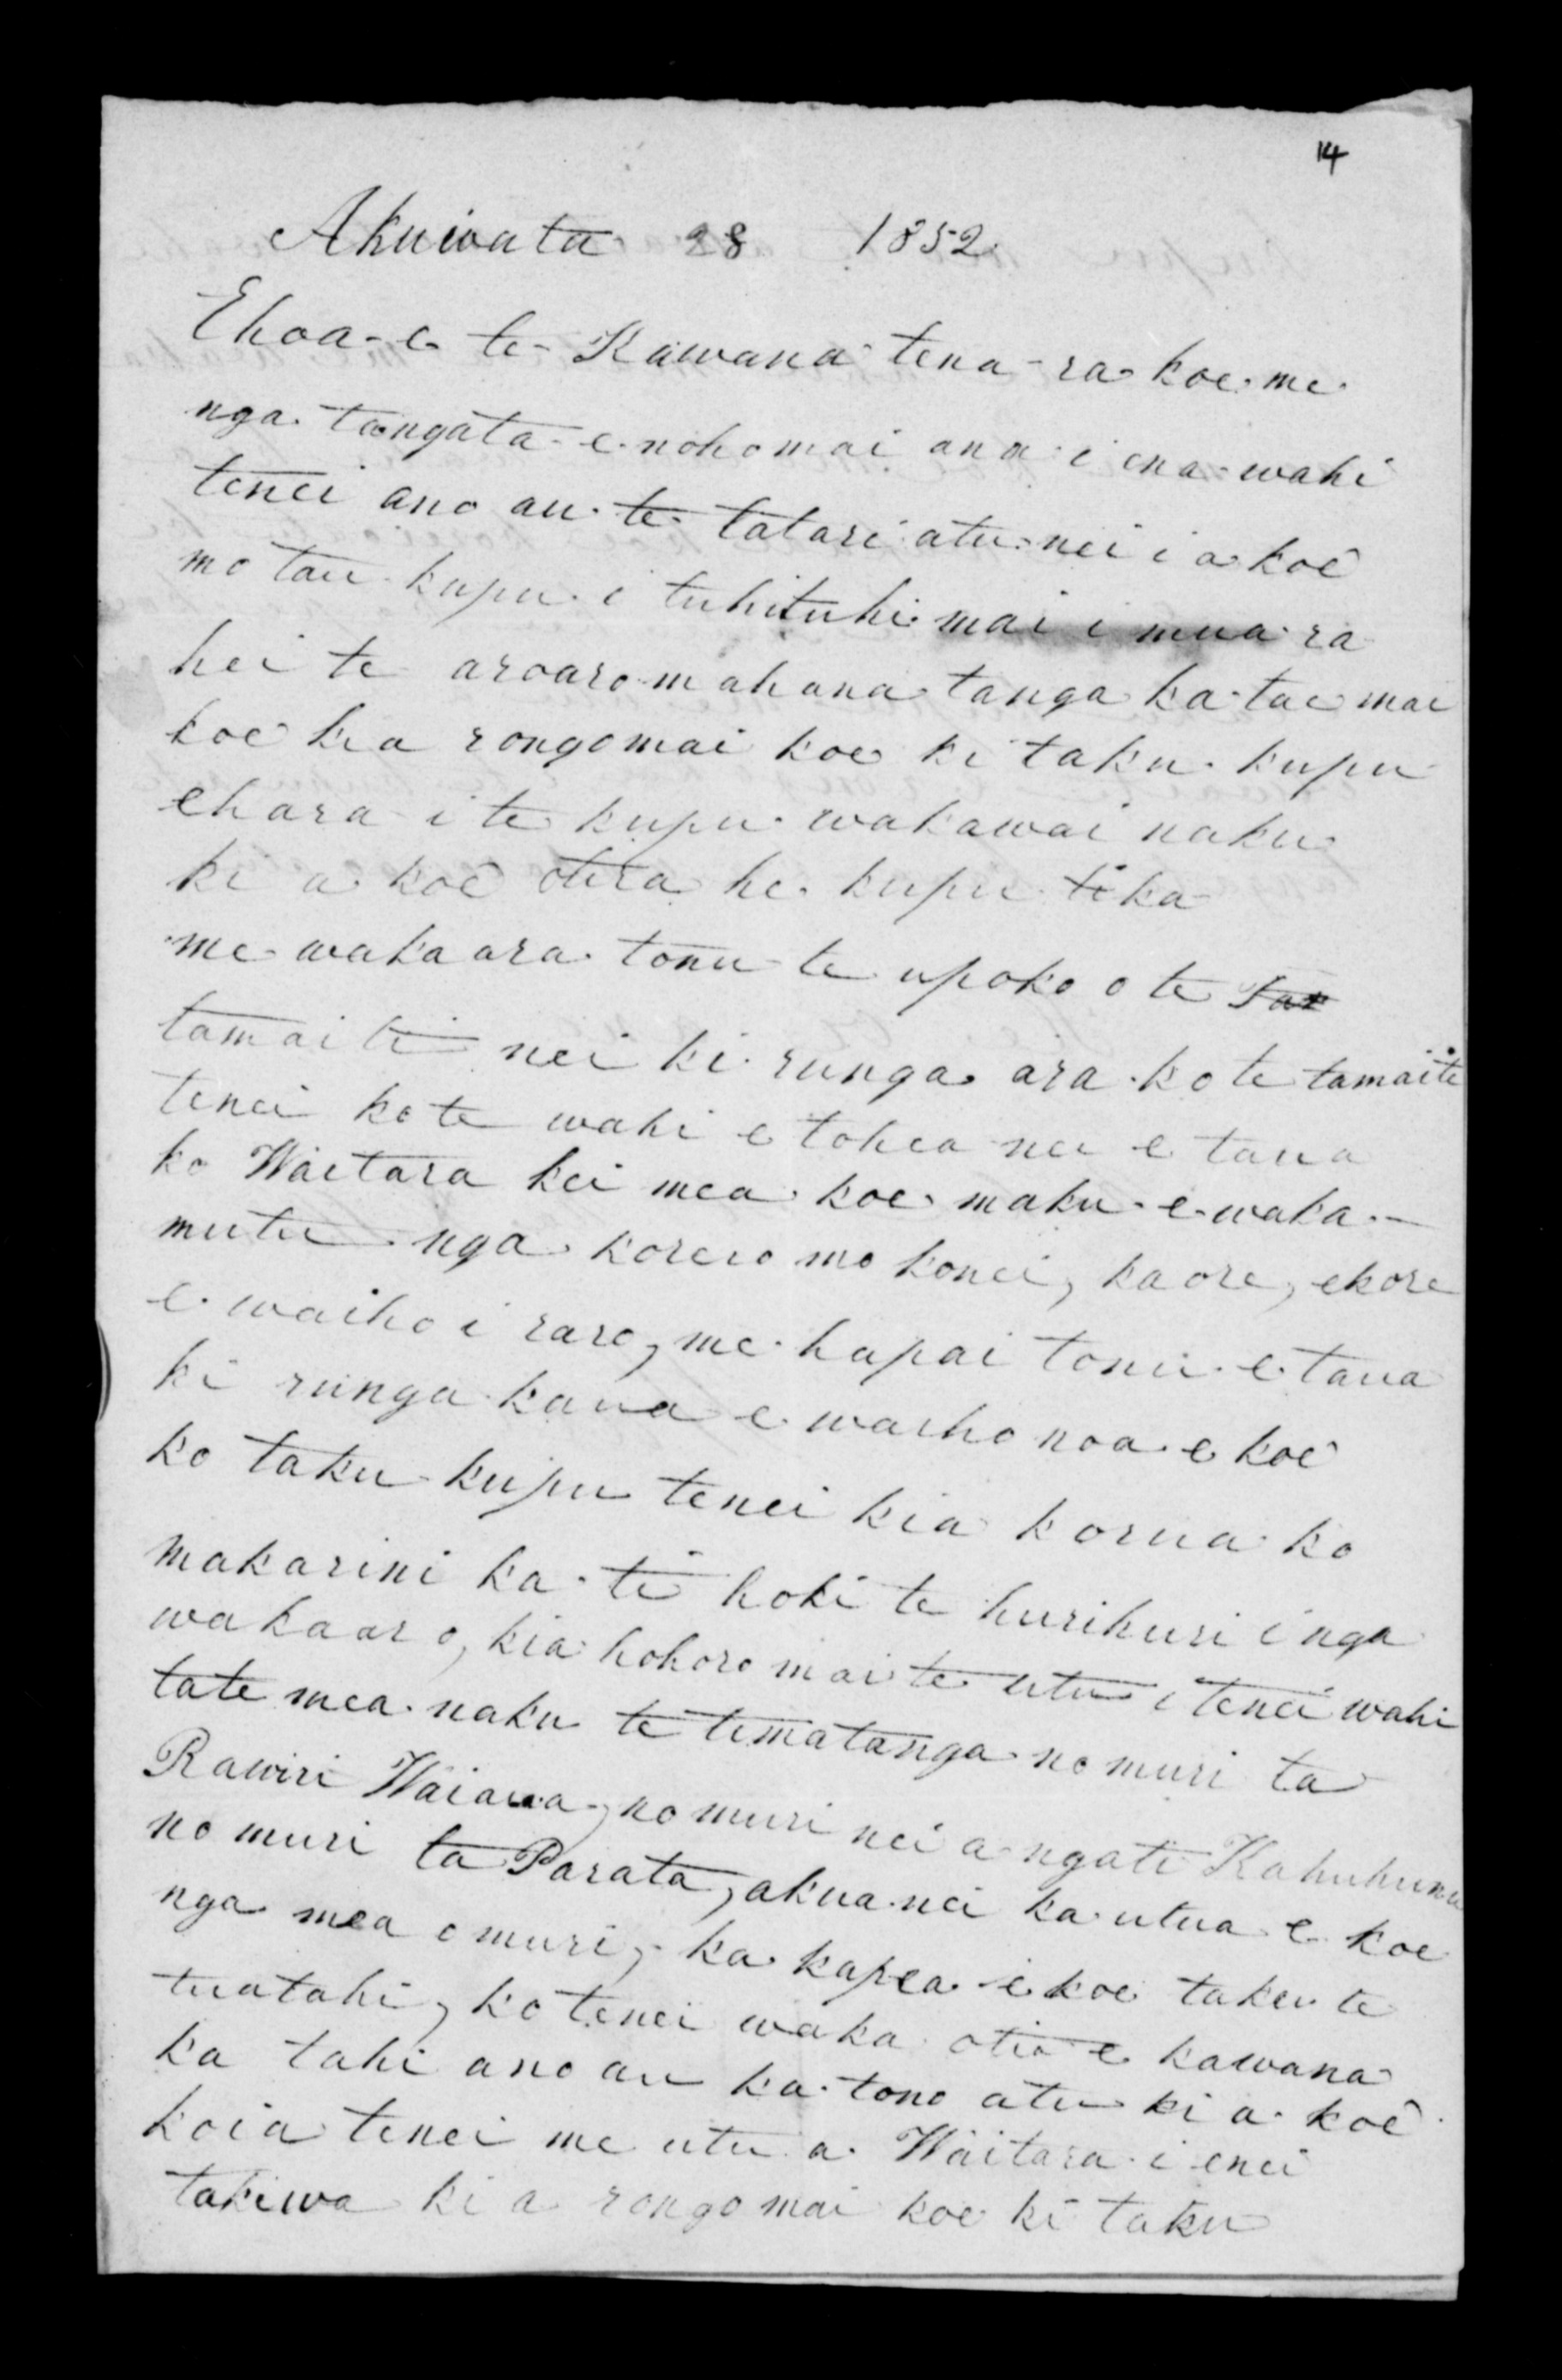 14
Akuwata 28 1852
Ehoa-e te-Kawana tena-ra koe. me
nga tangata-e-nohomai ana i ena-wahi
tenei ano au te tatari atu nei i a koe
mo tau kupu i tuhituhi mai i mua ra
hei te aroaromahana tanga ka tae mai
koe kia rongomai koe ki taku kupu
ehara i te kupu wakawai naku
ki a koe otira he kupu tika
me wakaara tonu te upoko o te
tamaiti nei ki runga ara ko te tamaiti
tenei ko te wahi e tohea nei e taua
ko Waitara kei mea koe maku e waka-
mutu nga korero mo konei, kaore, ekore
e waiho i raro, me hapai tonu e taua
ki runga kaua e waiho noa e koe
ko taku kupu tenei kia korua ko
makarini ka ti hoki te hurihuri i nga
wakaaro, kia hohoro mai te utu i tenei wahi
tate mea naku te timatanga no muri ta
Rawiri Waiaua, no muri nei a ngati Kahuhunu
no muri ta Parata, akua nei ka utua e koe
nga mea o muri, ka kapea e koe taku te
tuatahi, ko tenei waka otia e kawana
ka tahi ano au ka tono atu ki a koe
koia tenei me utu a Waitara i enei
takiwa kia rongo mai koe ki taku